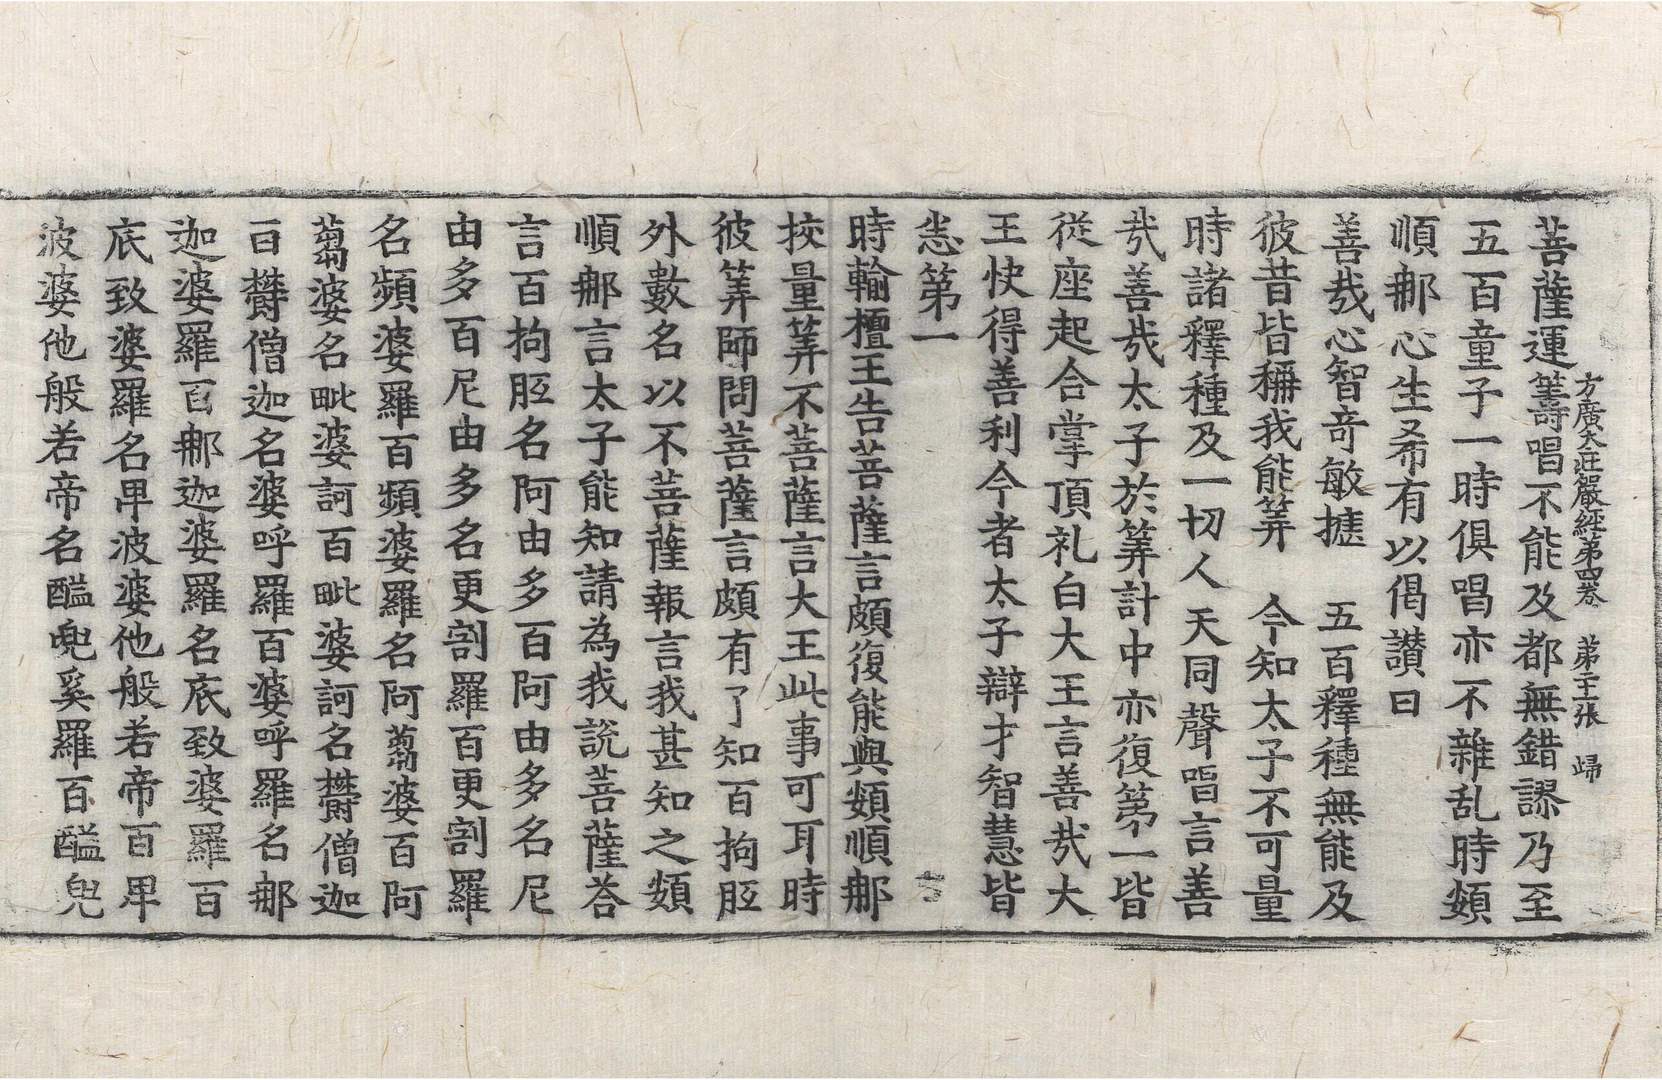 方廣大莊嚴經第四卷 第二張 歸
菩薩運籌唱不能及都無錯謬乃至
五百童子一時俱唱亦不雜乱時頞
順那心生希有以偈讃曰
善㢤心智奇敏捷 五百釋種無能及
彼昔皆稱我能筭 今知太子不可量
時諸釋種及一切人天同聲唱言善
㢤善㢤太子於筭計中亦復第一皆
從座起合掌頂礼白大王言善㢤大
王快得善利今者太子辯才智慧皆
悉第一
時輸檀王告菩薩言頗復能與頞順那
挍量筭不菩薩言大王此事可耳時
彼筭師問菩薩言頗有了知百拘胝
外數名以不菩薩報言我甚知之頞
順那言太子能知請為我說菩薩荅
言百拘胝名阿由多百阿由多名尼
由多百尼由多名更割羅百更割羅
名頻婆羅百頻婆羅名阿蒭婆百阿
蒭婆名毗婆訶百毗婆訶名欝僧迦
百欝僧迦名婆呼羅百婆呼羅名那
迦婆羅百那迦婆羅名底致婆羅百
底致婆羅名卑波婆他般若帝百卑
波婆他般若帝名醯兜奚羅百醯兜